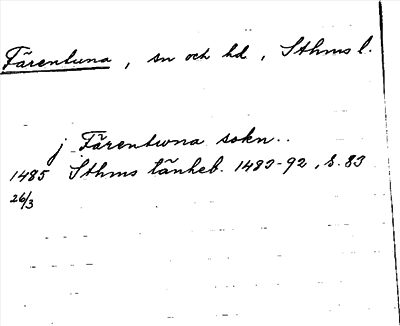 Färentuna, sn och hd, Sthms l.
j Färentwna sokn..
1485 Sthms tänkeb. 1483-92, s. 83
26/3